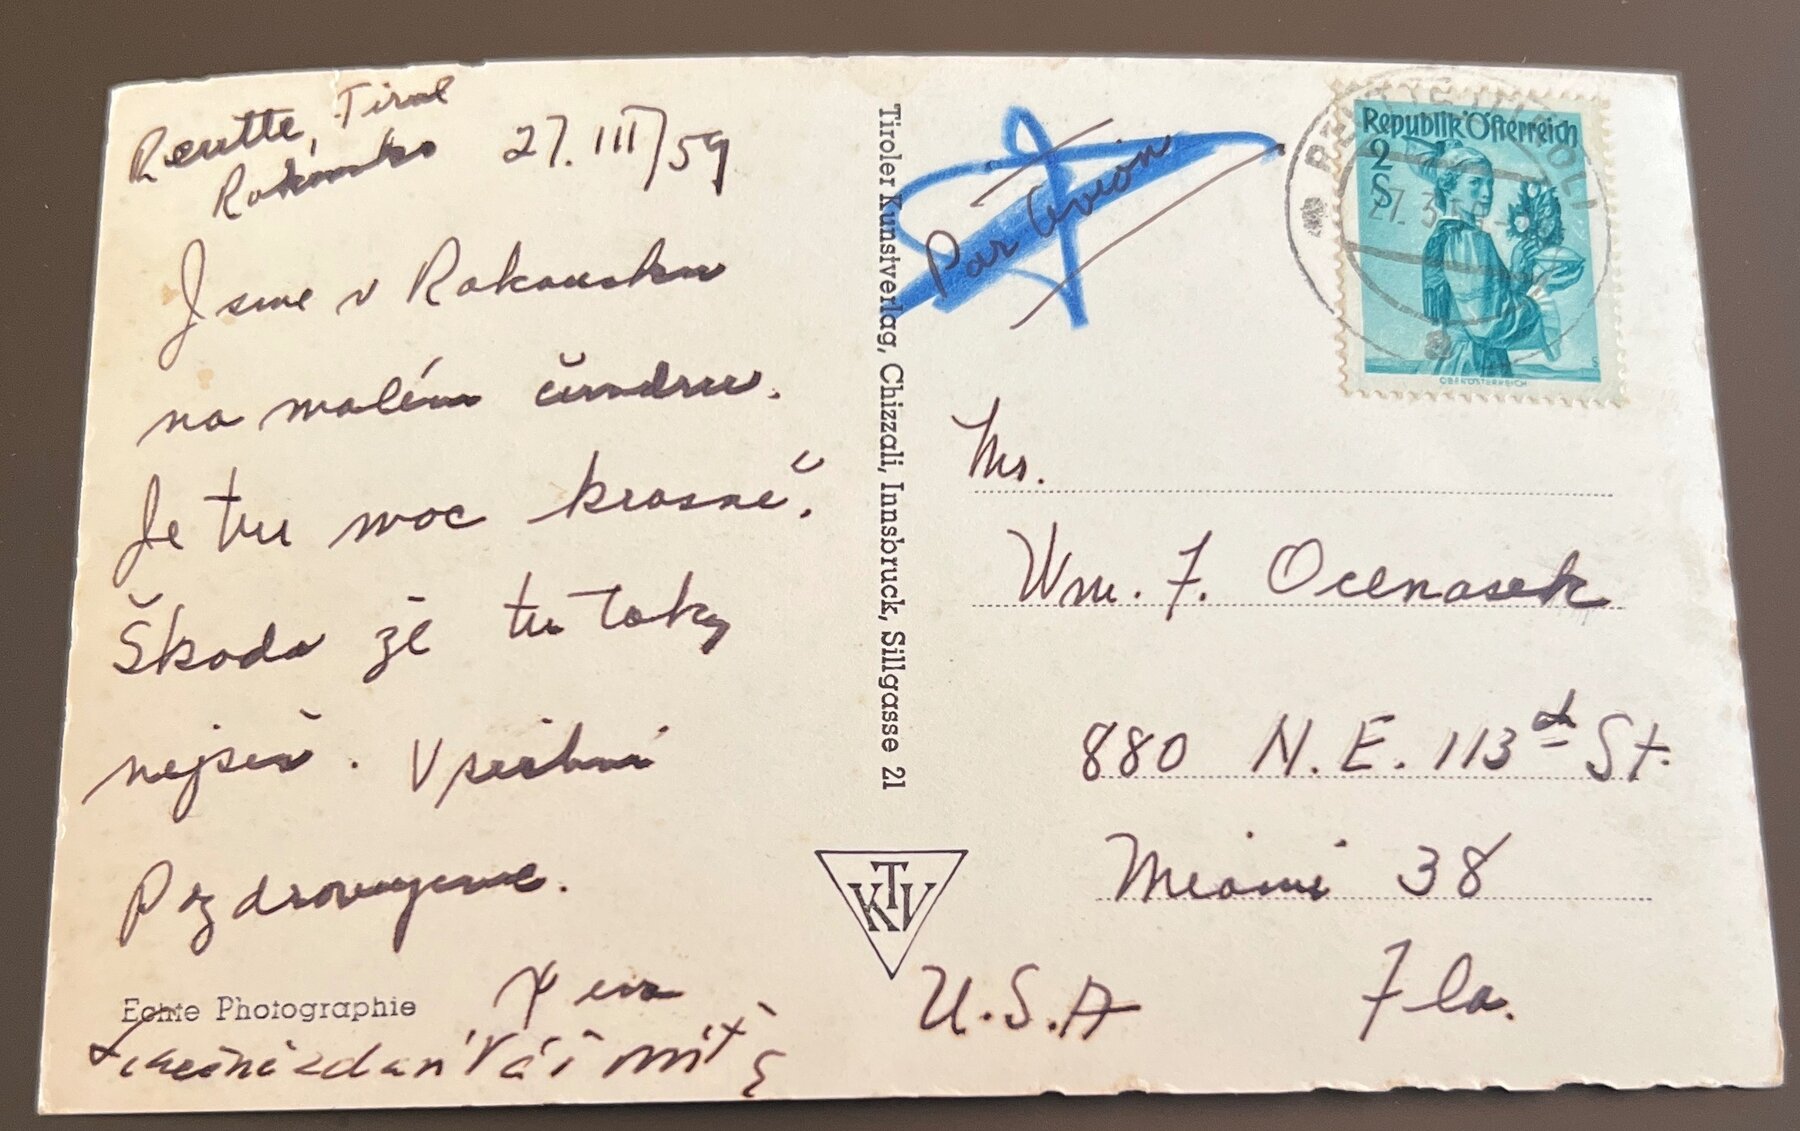 Reutte, Tirol
Rakousko 27.III/59
Jsme v Rakousku
na malém čundru.
Je tu moc krasně.
Škoda že tu taky
nejseš. Vsichni
Pozdravujeme.
Echte Photographie
zdaní Váš
Tiroler Kunstverlag, Chizzali, Innsbruck, Sillgasse 21
KTV
Par Avion
Republik Österreich
2
S
OBERÖSTERREICH
27.3.59
Mr.
Wm. F. Ocenasek
880 N.E. 113th St.
Miami 38
U.S.A Fla.